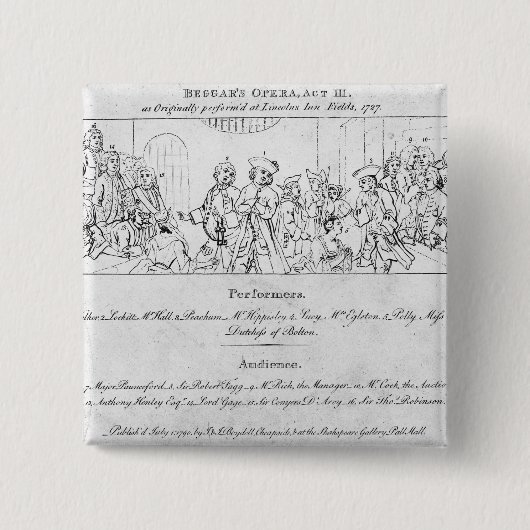 BEGGAR'S OPERA, ACT III.
as Originally perform'd at Lincolns Inn Fields, 1727.
Performers.
ther, 2, Lockitt, Mr. Hall, 3, Peachum, Mr. Hippisley 4, Lucy, Mrs. Egleton, 5, Polly, Miss
Dutchess of Bolton.
Audience.
7, Major Paunceford, 8, Sir Robert Fagg, 9, Mr. Rich, the Manager, 10, Mr. Cock, the Auctio
13, Anthony Henley Esqr. 14, Lord Gage, 15, Sir Conyers D'Arcy, 16, Sir Thos. Robinson.
Publish'd July 1, 1790, by J. & J. Boydell, Cheapside, & at the Shakspeare Gallery, Pall Mall.